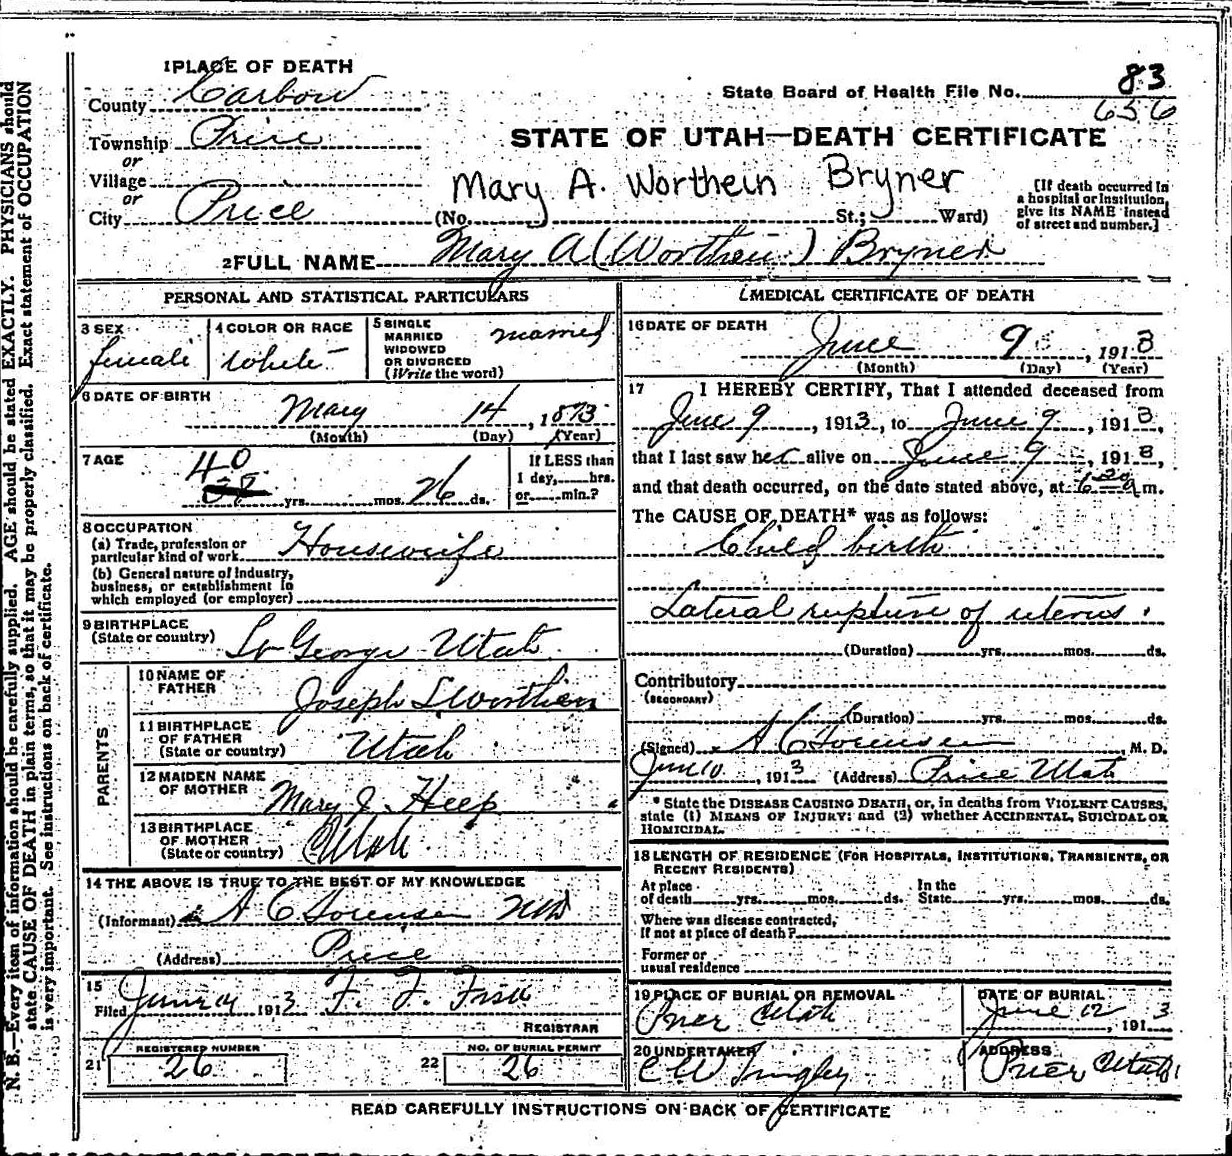 1 PLACE OF DEATH
County Carbon
Township Price
or
Village
or
City Price
State Board of Health File No. 83
656
STATE OF UTAH—DEATH CERTIFICATE
Mary A. Worthein Bryner
(No. St.; Ward)
[If death occurred in
a hospital or institution,
give its NAME instead
of street and number.]
2 FULL NAME Mary A (Worthein) Bryner
PERSONAL AND STATISTICAL PARTICULARS
3 SEX
female
4 COLOR OR RACE
White
5 SINGLE
MARRIED
WIDOWED
OR DIVORCED
(Write the word)
married
6 DATE OF BIRTH
May 14, 1873
(Month) (Day) (Year)
7 AGE
40
yrs. mos. 26 ds.
If LESS than
1 day, hrs.
or min.?
8 OCCUPATION
(a) Trade, profession or
particular kind of work Housewife
(b) General nature of industry,
business, or establishment in
which employed (or employer)
9 BIRTHPLACE
(State or country) St George Utah
PARENTS
10 NAME OF
FATHER Joseph S Worthien
11 BIRTHPLACE
OF FATHER
(State or country) Utah
12 MAIDEN NAME
OF MOTHER Mary J. Heep
13 BIRTHPLACE
OF MOTHER
(State or country) Utah
14 THE ABOVE IS TRUE TO THE BEST OF MY KNOWLEDGE
(Informant) A C Sorensen MD
(Address) Price
15
Filed June 14 1913 F. F. Fisk
REGISTRAR
REGISTERED NUMBER
21 26
NO. OF BURIAL PERMIT
22 26
MEDICAL CERTIFICATE OF DEATH
16 DATE OF DEATH
June 9, 1913
(Month) (Day) (Year)
17 I HEREBY CERTIFY, That I attended deceased from
June 9, 1913, to June 9, 1913,
that I last saw her alive on June 9, 1913,
and that death occurred, on the date stated above, at 6 30 a m.
The CAUSE OF DEATH* was as follows:
Child birth
Lateral rupture of uterus.
(Duration) yrs. mos. ds.
Contributory
(SECONDARY)
(Duration) yrs. mos. ds.
(Signed) A C Sorensen, M. D.
Jun 10, 1913 (Address) Price Utah
* State the DISEASE CAUSING DEATH, or, in deaths from VIOLENT CAUSES,
state (1) MEANS OF INJURY; and (2) whether ACCIDENTAL, SUICIDAL OR
HOMICIDAL.
18 LENGTH OF RESIDENCE (FOR HOSPITALS, INSTITUTIONS, TRANSIENTS, OR
RECENT RESIDENTS)
At place
of death yrs. mos. ds.
In the
State yrs. mos. ds.
Where was disease contracted,
If not at place of death?
Former or
usual residence
19 PLACE OF BURIAL OR REMOVAL
Price Utah
DATE OF BURIAL
June 12, 1913
20 UNDERTAKER
C W
ADDRESS
Price Utah
READ CAREFULLY INSTRUCTIONS ON BACK OF CERTIFICATE
N. B.—Every item of information should be carefully supplied. AGE should be stated EXACTLY. PHYSICIANS should
state CAUSE OF DEATH in plain terms, so that it may be properly classified. Exact statement of OCCUPATION
is very important. See instructions on back of certificate.